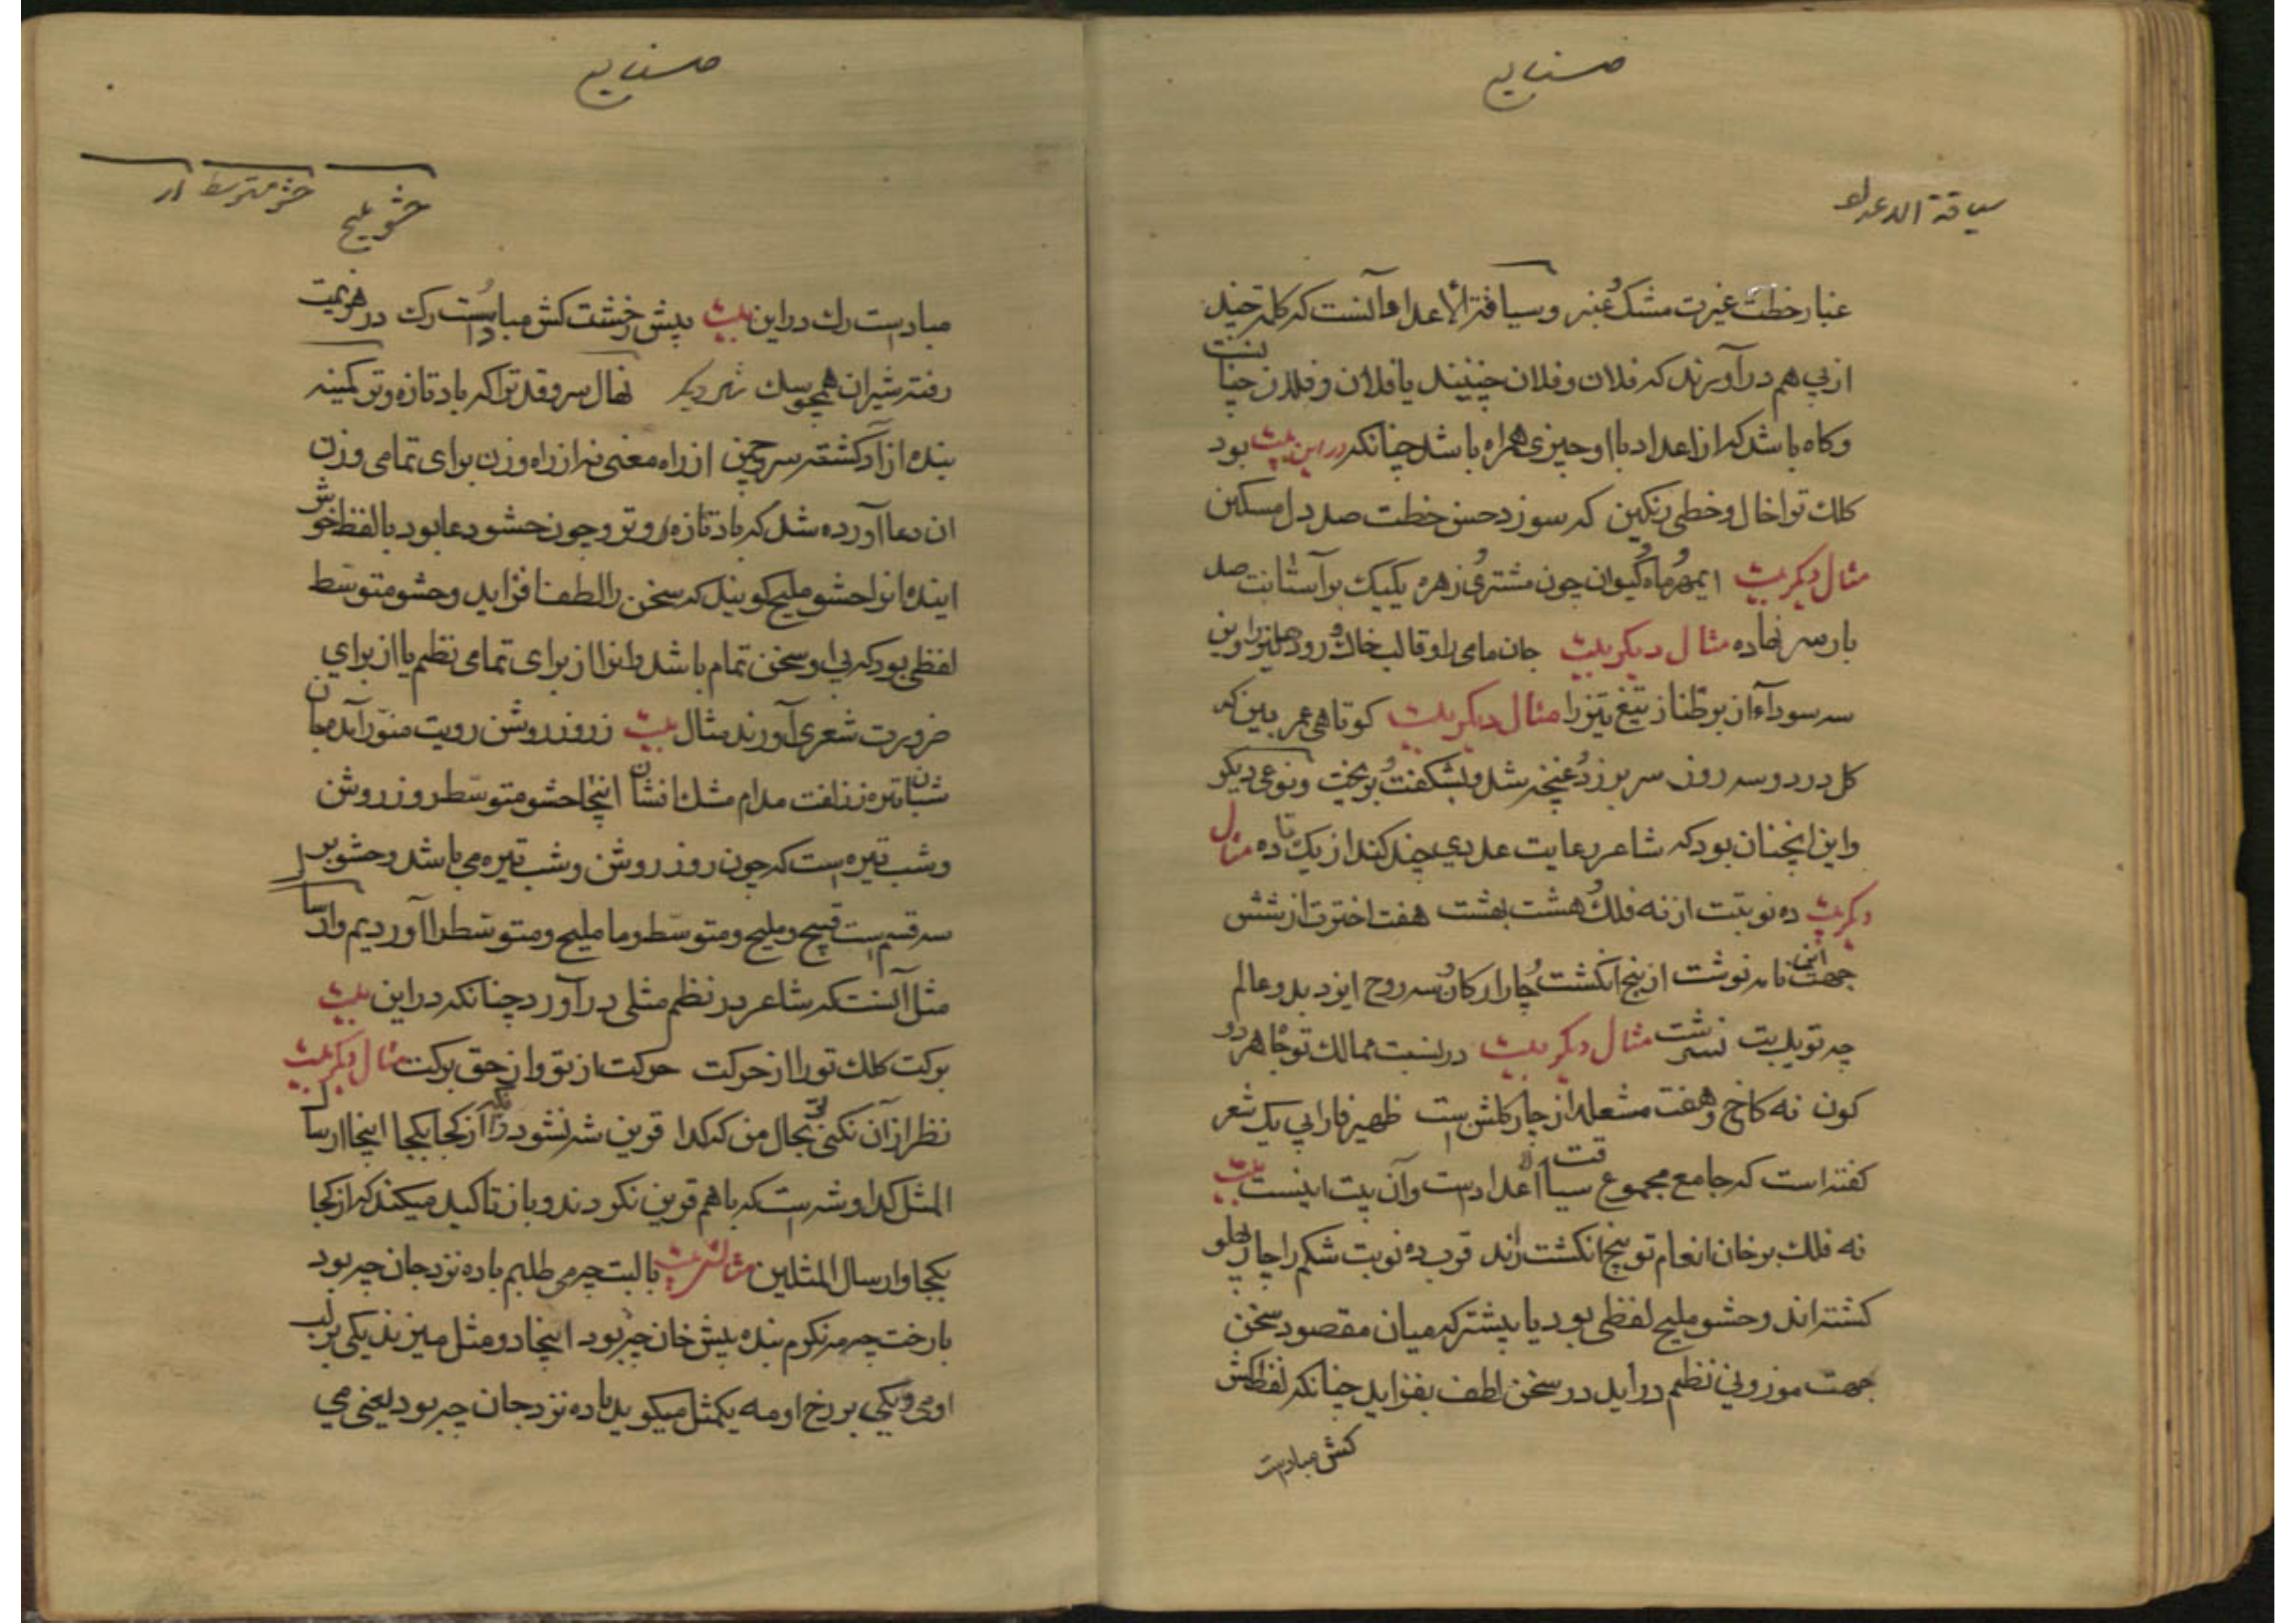 صنایع
سیاقة الاعداد
غبار خطت غیرت مشک و عنبر و سیاقة الاعداد آنست که کلمه چند
از پی هم درآورند که فلان و فلان چنینند یا فلان و فلان چنانست
و کاه باشد که از اعداد با او چیزی همراه باشد چنانکه در این بیت بود
کلک تو اخال و خطی رنکین که سوزد حسن خطت صد دل مسکین
مثال دیکر بیت ایمهر و ماه و کیوان چون مشتری و زهره یکیک بر آستانت صد
بار سر نهاده مثال دیکر بیت جان مامی را و قالب خاک و رود
سر سودا تیغ تیز را مثال دیکر بیت کوتاهی عمر بین که
کل در دو سه روز سر برزد و غنچه شد و بشکفت و بریخت و نوعی دیکر
و این انچنان بود که شاعر رعایت عددی چند کند از یک تا ده مثال
دیکر بیت ده نوبتت از نه فلک و هشت بهشت هفت اخترت از شش
جهت این نامه نوشت از پنج انکشت و چار ارکان و سه روح ایزد بدو عالم
چه تو یک بت نسرشت مثال دیکر بیت در نسبت ممالک تو جاه هر دو
کون نه کاخ و هفت مشعله از چار کلشن است ظهیر فارابی یک شعر
کفته است که جامع مجموع سیاقت اعداد است و آن بیت اینست بیت
نه فلک بر خان انعام تو پنج انکشت زند قرب ده نوبت شکم را چار پهلو
کشته اند و حشو ملیح لفظی بود یا بیشتر که میان مقصود سخن
جهت موزونی نظم درآید در سخن لطف بفزاید چنانکه لفظ کش
کش مباد است
صنایع
حشو ملیح حشو متوسط ار
مباد است رک در این بیت پیش زخشت کش مباد است رک در هزیمت
رفته شیران همچو سک شعر دیکر نهال سرو قد تو اکه باد تازه و تر کمینه
بنده ازاد کشته سر چمن از راه معنی نه از راه وزن برای تمامی وزن
ان دعا آورده شد که باد تازه و تر و چون حشو دعا بود بالفظ خوش
اینده انرا حشو ملیح کویند که سخن را لطف افزاید و حشو متوسّط
لفظی بود که بی او سخن تمام باشد و انرا از برای تمامی نظم یا از برای
ضرورت شعری آورند مثال بیت ز روز روشن رویت منوّر آمد جان
شبان تیره ز زلفت مدام مشک افشان اینجا حشو متوسّط روز روشن
و شب تیره است که چون روز روشن و شب تیره می باشد و حشو بر
سه قسم است قبیح و ملیح و متوسّط و ما ملیح و متوسّط را آوردیم و ارسال
مثل آنست که شاعر در نظم مثلی درآورد چنانکه در این بیت
برکت کلک تورا از حرکت حرکت از تو و از حق برکت مثال دیکر بیت
نظر از آن نکنی بحال من که کدا قرین شه نشود زانکه از کجا بکجا اینجا ارسال
المثل کدا و شه است که با هم قرین نکردند و باز تاکید میکند که از کجا
بکجا و ارسال المثلین مثالش بیت با لبت چه می طلبم باده نزد جان چه بود
با رخت چه مه نکرم بنده پیش خان چه بود اینجا دو مثل میزند یکی بر لب
او می و یکی بر رخ او مه یکمثل میکوید باده نزد جان چه بود یعنی می